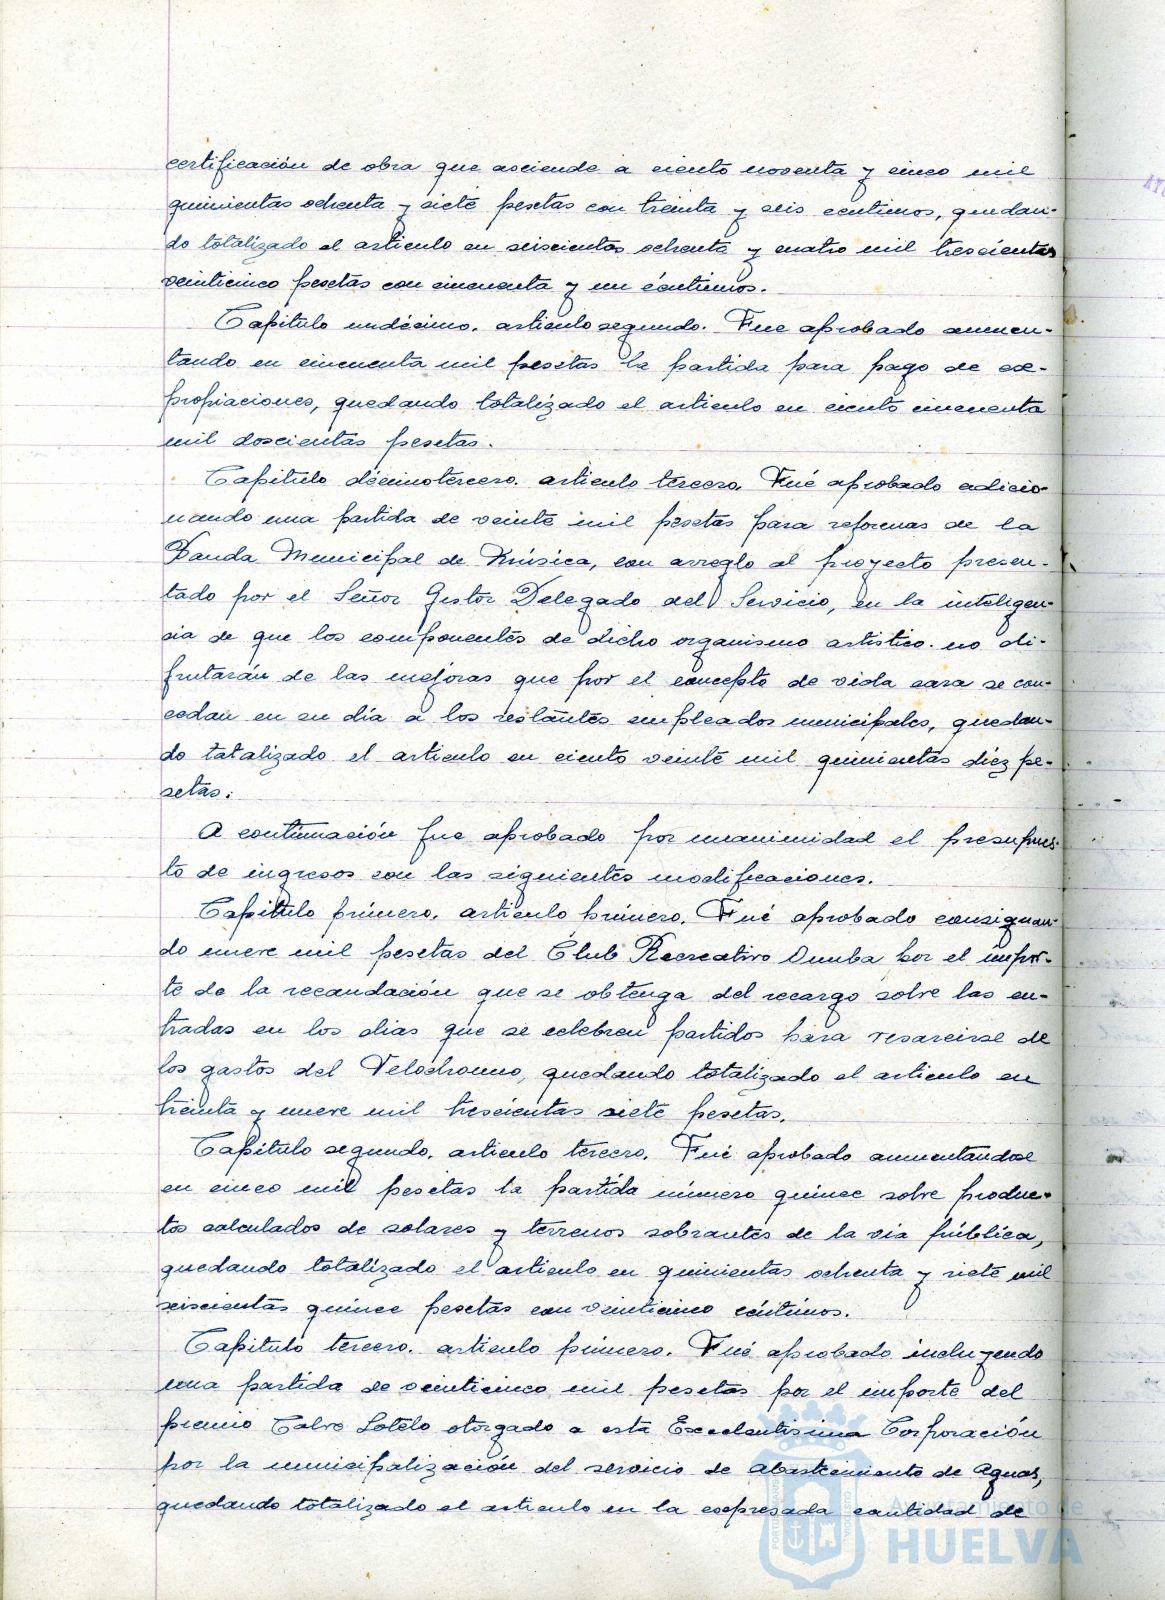 certificación de obra que asciende a ciento noventa y cinco mil
quinientas ochenta y siete pesetas con treinta y seis centimos, quedan-
do totalizado el articulo en seiscientas ochenta y cuatro mil trescientas
veinticinco pesetas con cincuenta y un céntimos.
Capitulo undécimo. articulo segundo. Fue aprobado aumen-
tando en cincuenta mil pesetas la partida para pago de ex-
propiaciones, quedando totalizado el articulo en ciento cincuenta
mil doscientas pesetas.
Capitulo décimotercero. articulo tercero. Fué aprobado adicio-
nando una partida de veinte mil pesetas para reformas de la
Banda Municipal de Música, con arreglo al proyecto presen-
tado por el Señor Gestor Delegado del Servicio, en la inteligen-
cia de que los componentes de dicho organismo artistico no di-
frutarán de las mejoras que por el concepto de vida cara se con-
cedan en su día a los restantes empleados municipales, quedan-
do totalizado el articulo en ciento veinte mil quinientas diez pe-
setas.
A continuación fue aprobado por unanimidad el presupues-
to de ingresos con las siguientes modificaciones.
Capitulo primero. articulo primero. Fué aprobado consignan-
do nueve mil pesetas del Club Recreativo Onuba por el impor-
te de la recaudación que se obtenga del recargo sobre las en-
tradas en los dias que se celebren partidos para resarcirse de
los gastos del Velodromo, quedando totalizado el articulo en
treinta y nueve mil trescientas siete pesetas.
Capitulo segundo. articulo tercero. Fué aprobado aumentandose
en cinco mil pesetas la partida número quince sobre produc-
tos calculados de solares y terrenos sobrantes de la via pública,
quedando totalizado el articulo en quinientas ochenta y siete mil
seiscientas quince pesetas con veinticinco céntimos.
Capitulo tercero. articulo primero. Fué aprobado incluyendo
una partida de veinticinco mil pesetas por el importe del
premio Calvo Sotelo otorgado a esta Excelentisima Corporación
por la municipalización del servicio de abastecimiento de aguas,
quedando totalizado el articulo en la expresada cantidad de
Ayuntamiento de
HUELVA